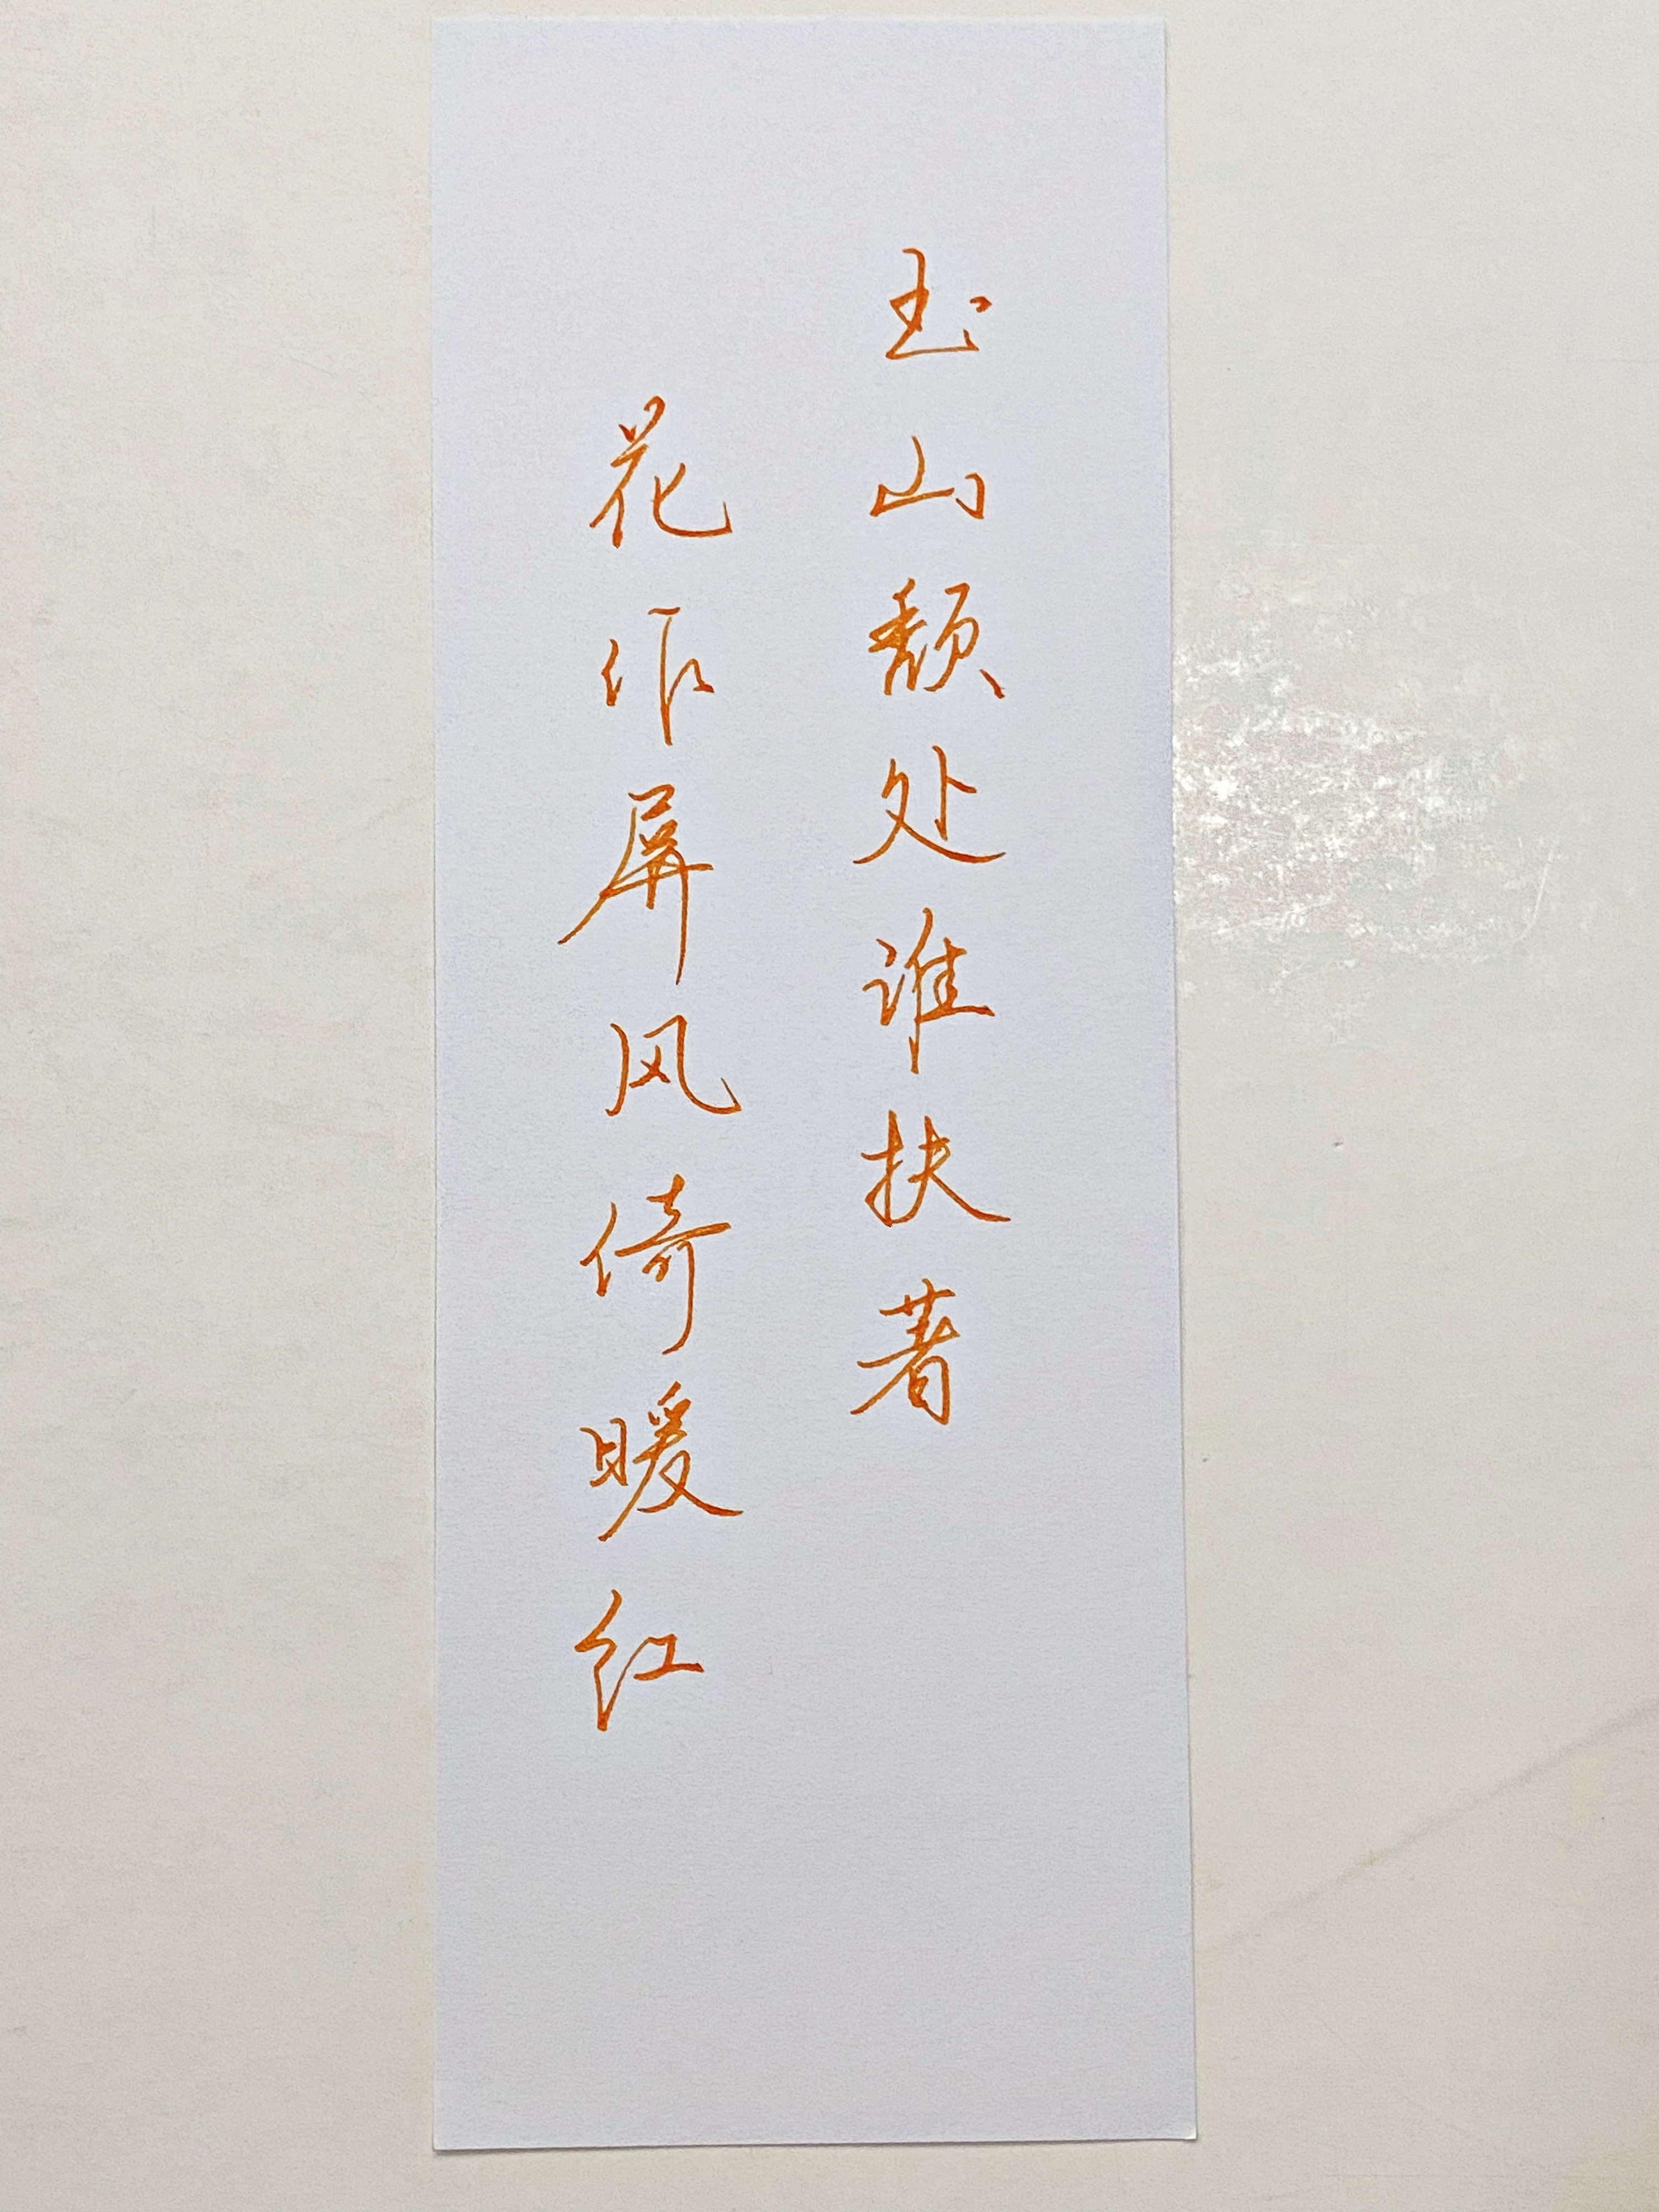 玉山颓处谁扶著
花作屏风倚暖红